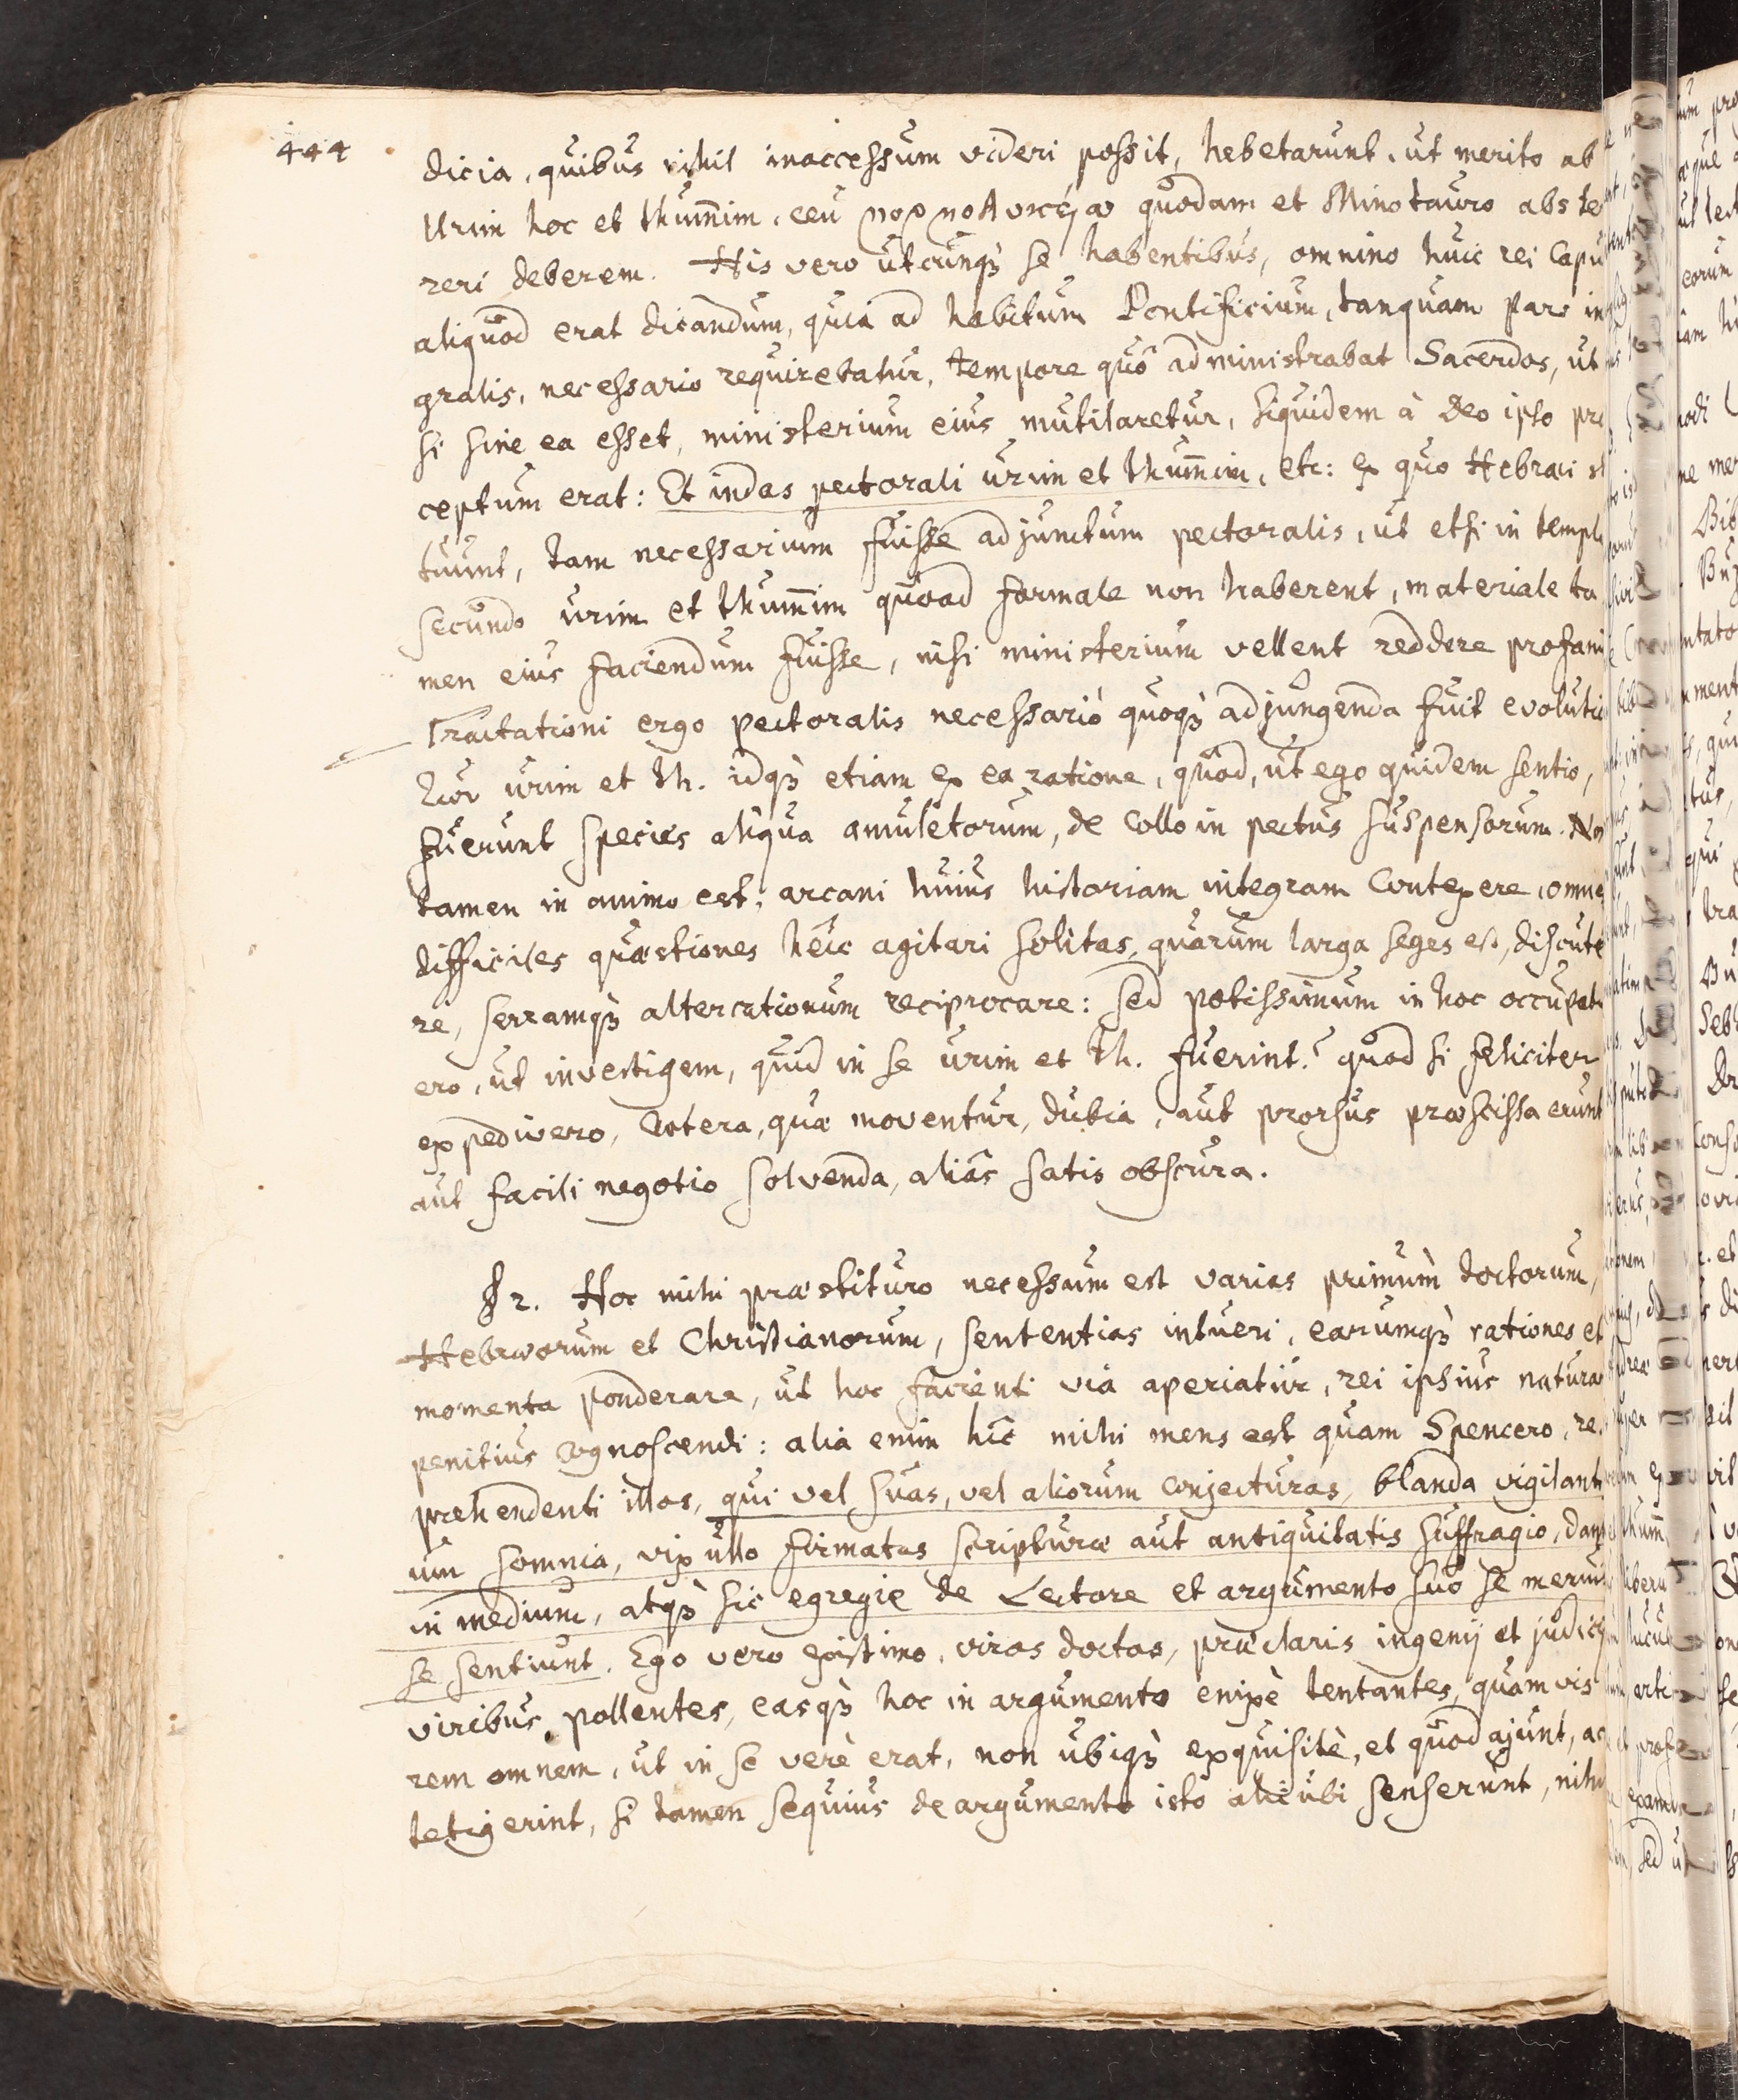 444
dicia, quibus nihil inaccessum videri possit, hebetarunt, ut merito ab
Urim hoc et thum̄im, ceu quodam et Minotauro abs te
reri deberem. His vero utcunqꝫ se habentibus, omnino huic rei Capu
aliquod erat dicandum, quia ad habitum Pontificium, tanquam pars in
gralis, necessario requirebatur, tempore quô administrabat Sacerdos, ut
si sine ea esset, ministerium eius mutilaretur, siquidem à Deo ipso præ
ceptum erat: Et indas pectorali urim et thum̄im, etc: ex quo Hebræi st
tuunt, tam necessarium fuisse adjunctum pectoralis, ut etsi in templo
secundo urim et thum̄im quoad formale non haberent, materiale ta
men eius faciendum fuisse, nisi ministerium vellent reddere profanū
Tractationi ergo pectoralis necessariò quoqꝫ adjungenda fuit evolutio
τῶν urim et th. idqꝫ etiam ex ea ratione, quod, ut ego quidem sentio,
fuerunt species aliqua amuletorum, de collo in pectus suspensorum. Non
tamen in animo est, arcani huius historiam integram contexere, omnes
difficiles quæstiones heic agitari solitas, quarum larga seges est, discute
re, serramqꝫ altercationum reciprocare: sed potissimum in hoc occupatu
ero, ut investigem, quid in se urim et th. fuerint? quod si feliciter
expedivero, cætera, quæ moventur, dubia, aut prorsus præscissa erunt
aut facili negotio solvenda, aliàs satis obscura.
§ 2. Hoc mihi præstituro necessum est varias primùm doctorum,
Hebræorum et Christianorum, sententias intueri, earumqꝫ rationes et
momenta ponderare, ut hoc facienti via aperiatur, rei ipsius naturam
penitius cognoscendi: alia enim hîc mihi mens est quam Spencero, re-
prehendenti illos, qui vel suas, vel aliorum conjecturas, blanda vigilanti
um somnia, vix ullo firmatas scripturæ aut antiquitatis suffragio, dant
in medium, atqꝫ sic egregie de Lectore et argumento suo se meruis
se sentiunt. Ego vero existimo, viros doctos, præclaris ingenij et judicij
viribus pollentes, easqꝫ hoc in argumento enixè tentantes, quamvis
rem omnem, ut in se verè erat, non ubiqꝫ exquisitè, et quod ajunt, ac
tetigerint, si tamen sequius de argumento isto alicubi senserunt, nihi